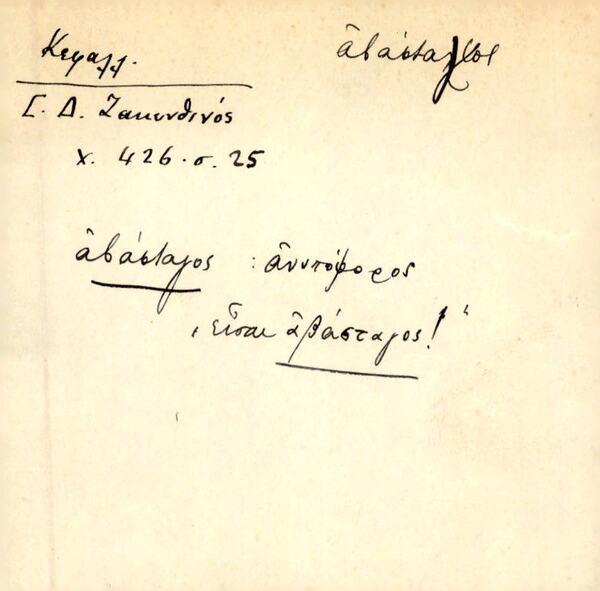 Κεφαλλ.
ἀβάσταχτος
Σ. Δ. Ζακυνθινός
χ. 426. σ. 25
ἀβάσταγος : ἀνυπόφορος
„εἶσαι ἀβάσταγος!“